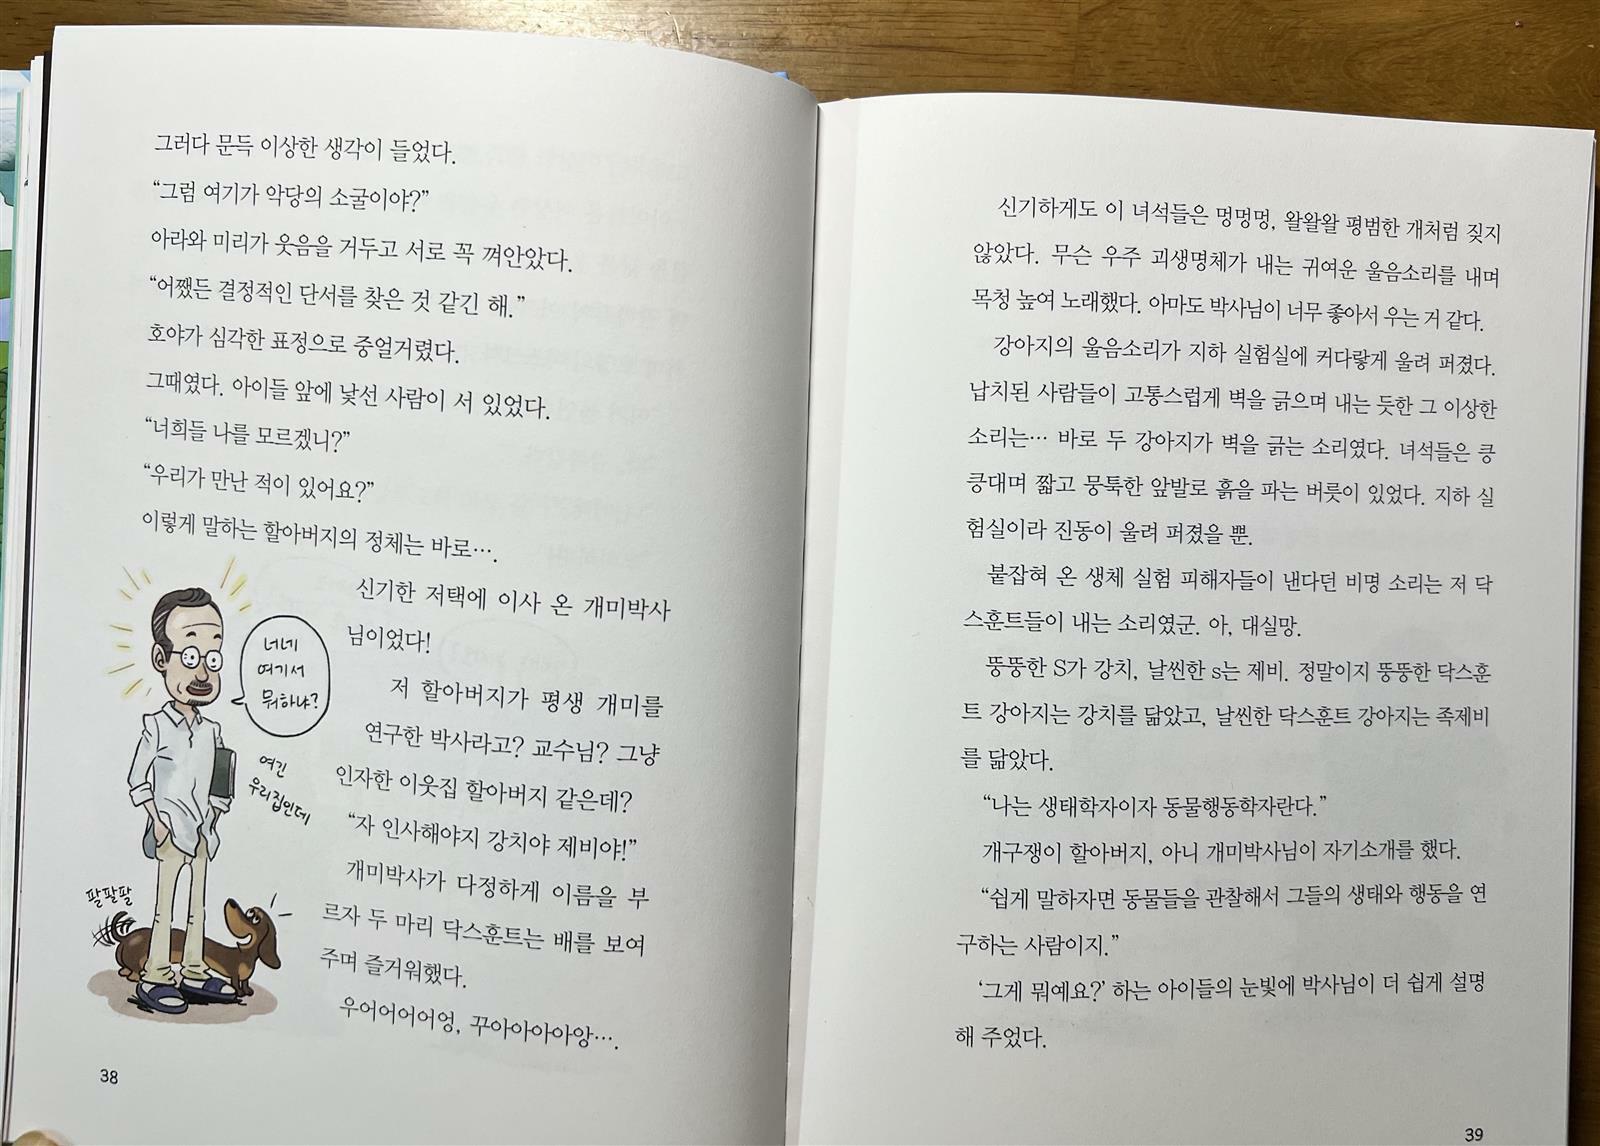 그러다 문득 이상한 생각이 들었다.
“그럼 여기가 악당의 소굴이야?”
아라와 미리가 웃음을 거두고 서로 꼭 껴안았다.
“어쨌든 결정적인 단서를 찾은 것 같긴 해.”
호야가 심각한 표정으로 중얼거렸다.
그때였다. 아이들 앞에 낯선 사람이 서 있었다.
“너희들 나를 모르겠니?”
“우리가 만난 적이 있어요?”
이렇게 말하는 할아버지의 정체는 바로….
신기한 저택에 이사 온 개미박사
님이었다!
너네
여기서
뭐하냐?
여긴
우리집인데
저 할아버지가 평생 개미를
연구한 박사라고? 교수님? 그냥
인자한 이웃집 할아버지 같은데?
“자 인사해야지 강치야 제비야!”
개미박사가 다정하게 이름을 부
르자 두 마리 닥스훈트는 배를 보여
주며 즐거워했다.
팔팔팔
우어어어어엉, 꾸아아아아앙….
38
신기하게도 이 녀석들은 멍멍멍, 왈왈왈 평범한 개처럼 짖지
않았다. 무슨 우주 괴생명체가 내는 귀여운 울음소리를 내며
목청 높여 노래했다. 아마도 박사님이 너무 좋아서 우는 거 같다.
강아지의 울음소리가 지하 실험실에 커다랗게 울려 퍼졌다.
납치된 사람들이 고통스럽게 벽을 긁으며 내는 듯한 그 이상한
소리는… 바로 두 강아지가 벽을 긁는 소리였다. 녀석들은 킁
킁대며 짧고 뭉툭한 앞발로 흙을 파는 버릇이 있었다. 지하 실
험실이라 진동이 울려 퍼졌을 뿐.
붙잡혀 온 생체 실험 피해자들이 낸다던 비명 소리는 저 닥
스훈트들이 내는 소리였군. 아, 대실망.
뚱뚱한 S가 강치, 날씬한 s는 제비. 정말이지 뚱뚱한 닥스훈
트 강아지는 강치를 닮았고, 날씬한 닥스훈트 강아지는 족제비
를 닮았다.
“나는 생태학자이자 동물행동학자란다.”
개구쟁이 할아버지, 아니 개미박사님이 자기소개를 했다.
“쉽게 말하자면 동물들을 관찰해서 그들의 생태와 행동을 연
구하는 사람이지.”
‘그게 뭐예요?’ 하는 아이들의 눈빛에 박사님이 더 쉽게 설명
해 주었다.
39